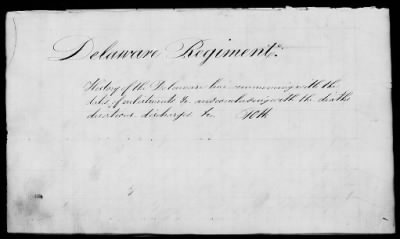 Delaware Regiment.
History of the Delaware line commencing with the
date of enlistments &c and concluding with the deaths
desertions discharges &c.